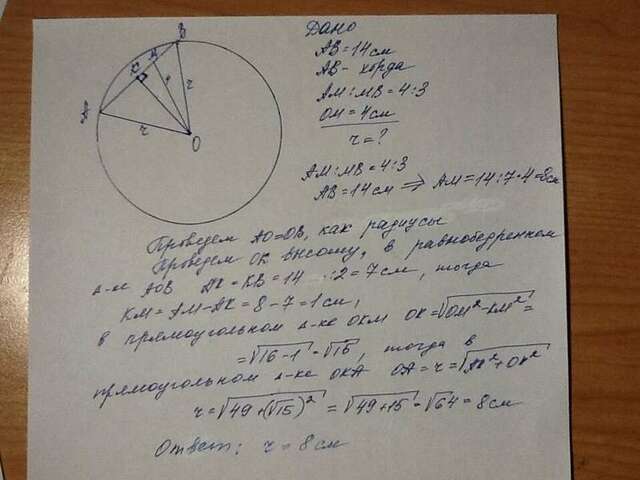 B
M
K
A
4
r
r
O
Дано
AB = 14 см
AB - хорда
AM : MB = 4 : 3
OM = 4 см
r = ?
AM : MB = 4 : 3
AB = 14 см ⇒ AM = 14 : 7 · 4 = 8 см
Проведем AO = OB, как радиусы
Проведем OK высоту, в равнобедренном
△-ке AOB AK = KB = 14 : 2 = 7 см, тогда
KM = AM - AK = 8 - 7 = 1 см,
в прямоугольном △-ке OKM OK = √OM² - KM² =
= √16 - 1 = √15, тогда в
прямоугольном △-ке OKA OA = r = √AK² + OK²
r = √49 + (√15)² = √49 + 15 = √64 = 8 см
Ответ: r = 8 см